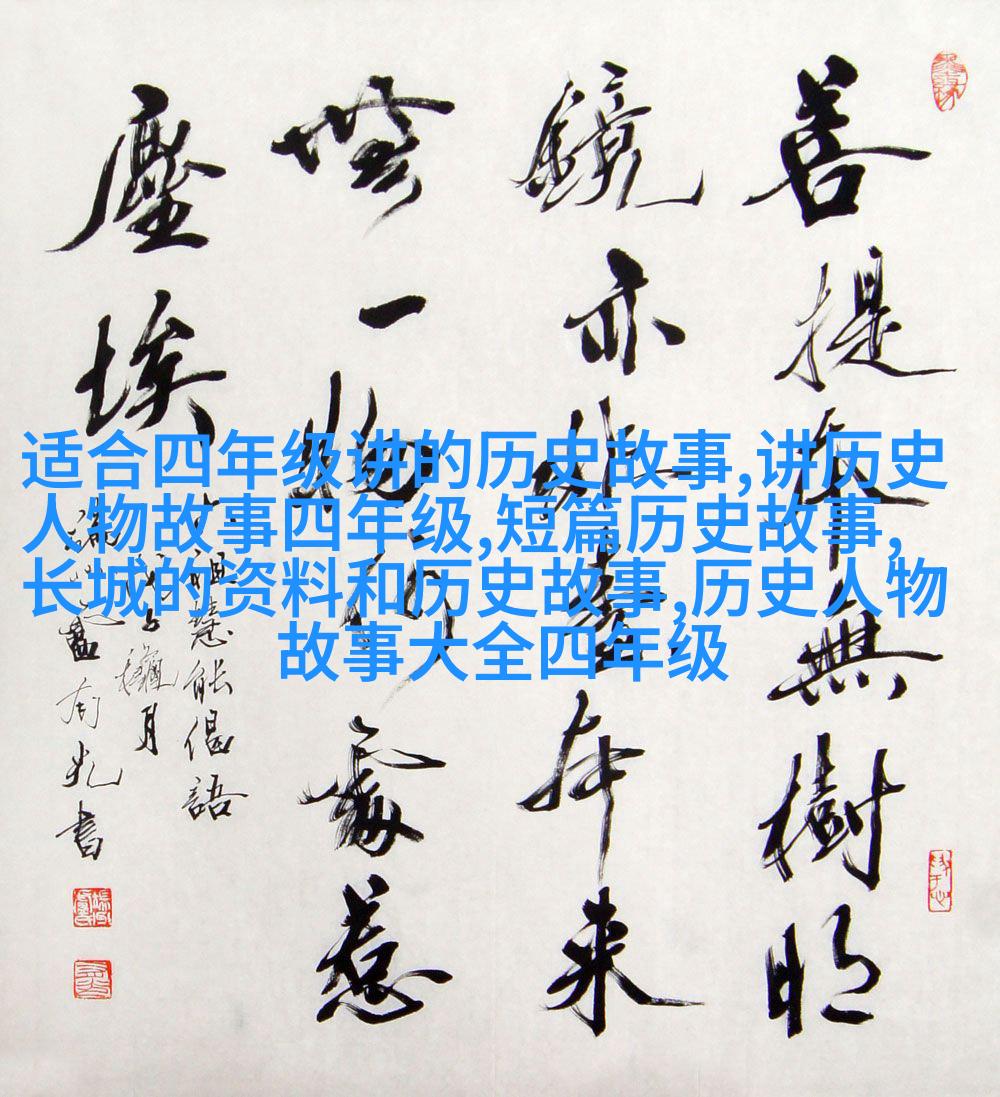 适合四年级讲的历史故事,讲历史
人物故事四年级,短篇历史故事,
长城的资料和历史故事,历史人物
故事大全四年级
菩提本無樹明
鏡亦非臺本来
無一物何處惹
塵埃
祖慧能偈語
月
書